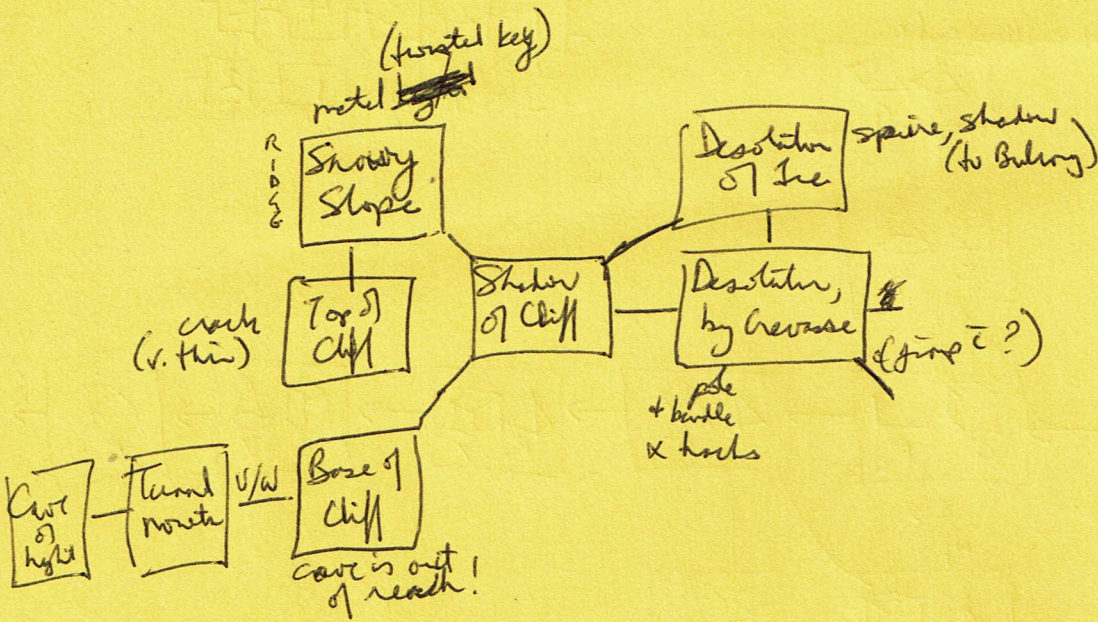 (twisted key)
metal
RIDGE
Snowy
Slope
Desolation
of Ice
spire, shadow
crack
(v. thin)
Top of
Cliff
Shadow
of Cliff
Desolation,
by Crevasse
pole
+ bundle
tracks
Cave
of
light
Tunnel
mouth
U/W
Base of
Cliff
cave is out
of reach!